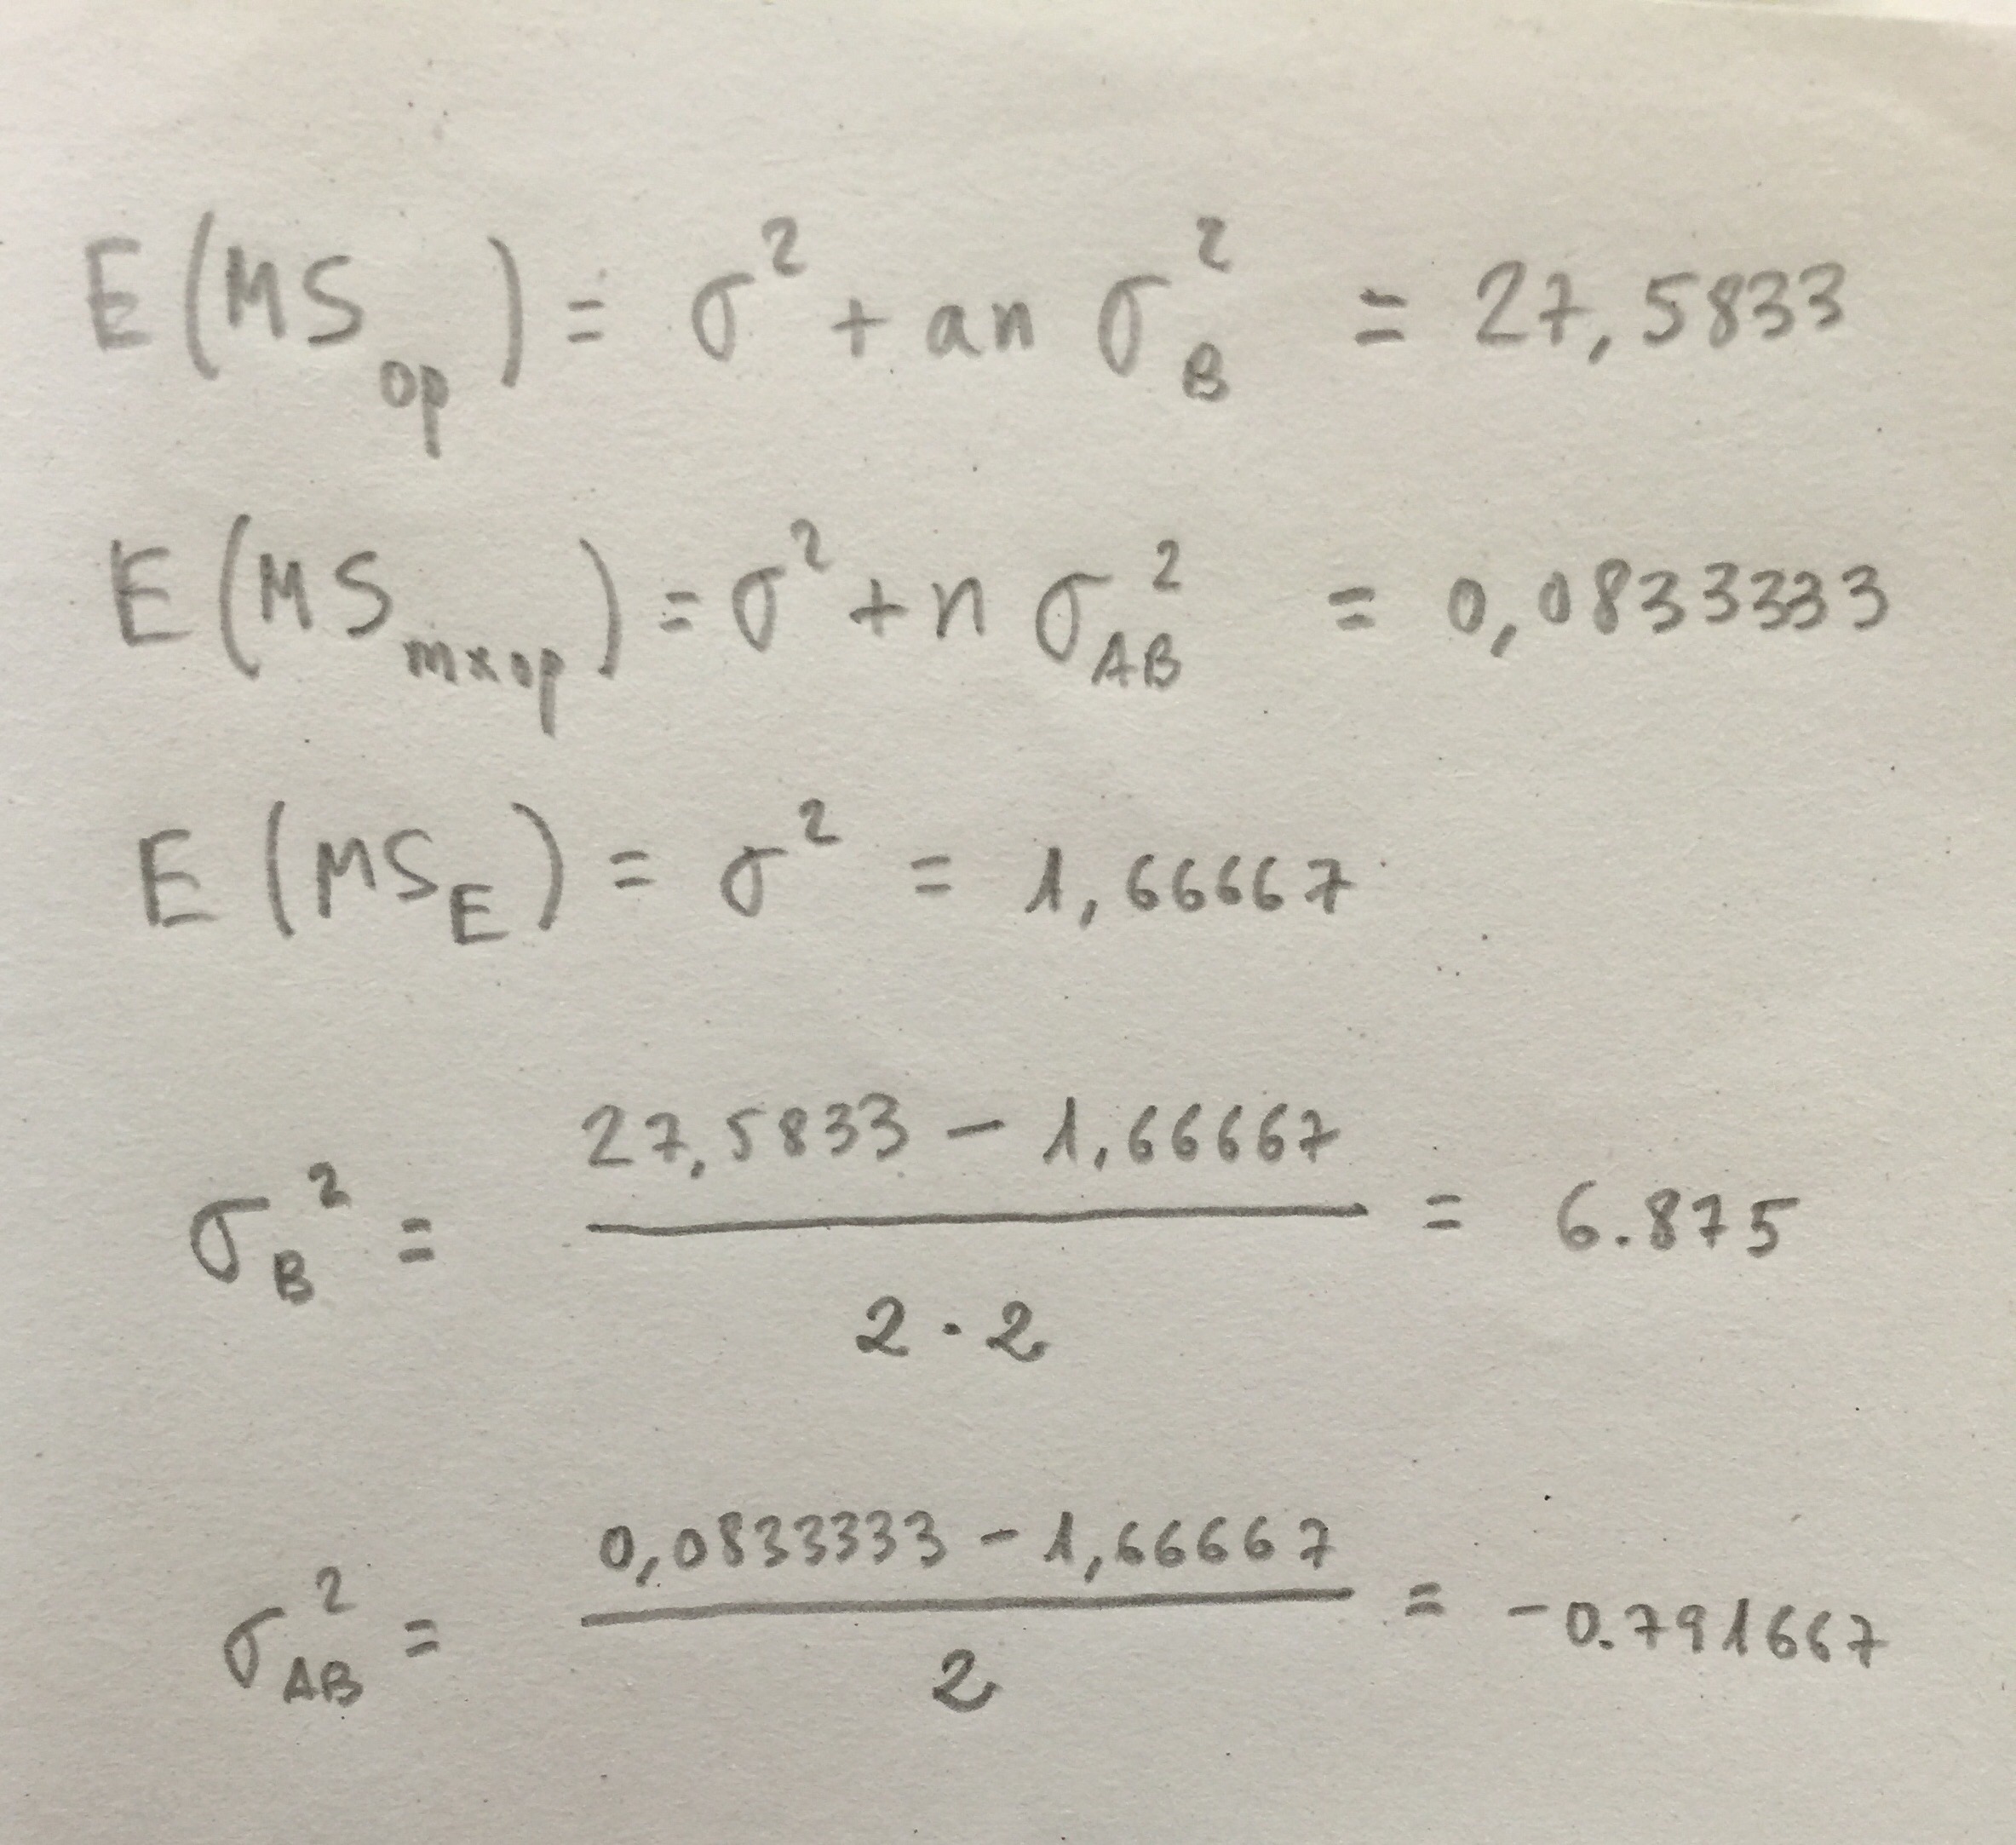 E(MS_op) = σ² + an σ_B² = 27,5833
E(MS_mxop) = σ² + n σ_AB² = 0,0833333
E(MS_E) = σ² = 1,66667
σ_B² = (27,5833 - 1,66667) / (2 · 2) = 6.875
σ_AB² = (0,0833333 - 1,66667) / 2 = -0.791667